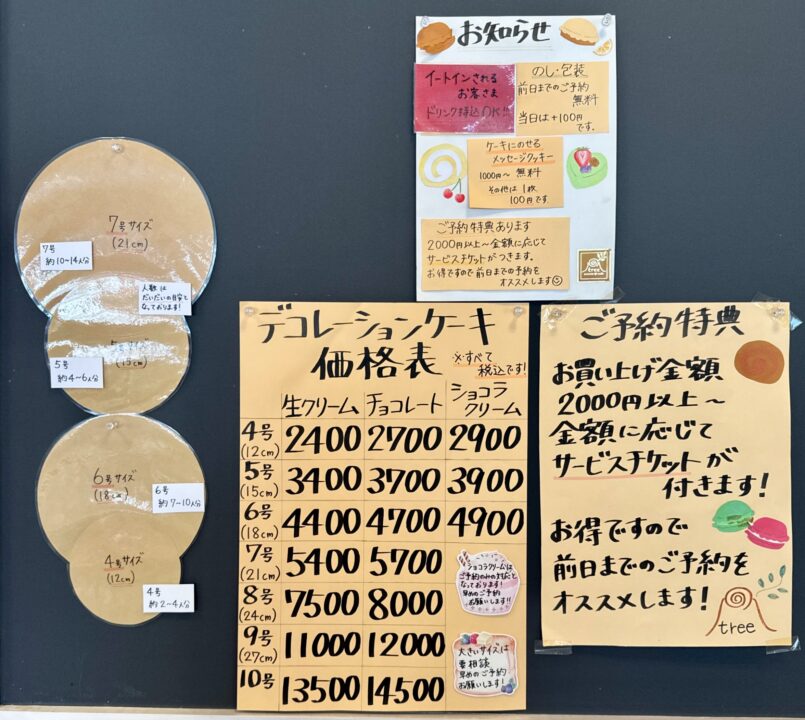 お知らせ
イートインされる
お客さま
ドリンク持込OK!!
のし・包装
前日までのご予約
無料
当日は+100円
です。
ケーキにのせる
メッセージクッキー
1000円〜 無料
その他は1枚
100円です
ご予約特典あります
2000円以上〜金額に応じて
サービスチケットがつきます。
お得ですので前日までの予約を
オススメします
tree
7号サイズ
(21cm)
7号
約10〜14人分
人数は
だいたいの目安と
なっております!
(15cm)
5号
約4〜6人分
6号サイズ
(18cm)
6号
約7〜10人分
4号サイズ
(12cm)
4号
約2〜4人分
デコレーションケーキ
価格表
※すべて
税込です!
生クリーム チョコレート ショコラクリーム
4号(12cm) 2400 2700 2900
5号(15cm) 3400 3700 3900
6号(18cm) 4400 4700 4900
7号(21cm) 5400 5700
8号(24cm) 7500 8000
9号(27cm) 11000 12000
10号 13500 14500
ショコラクリームは
ご予約のみの対応と
なっております!
早めのご予約
お願いします!!
大きいサイズは
要相談
早めのご予約
お願いします!
ご予約特典
お買い上げ金額
2000円以上〜
金額に応じて
サービスチケットが
付きます!
お得ですので
前日までのご予約を
オススメします!
tree